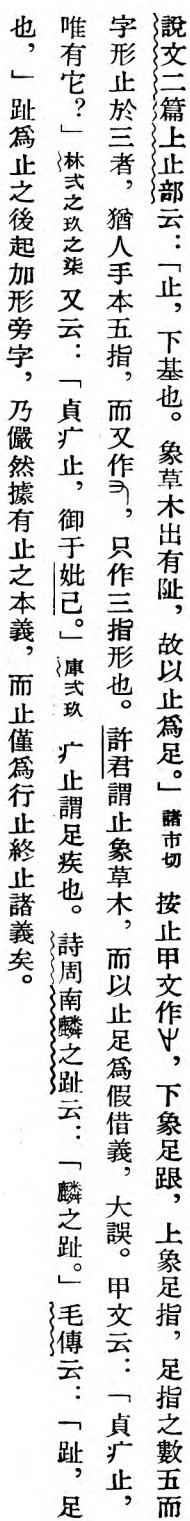 說文二篇上止部云：「止，下基也。象草木出有阯，故以止爲足。」諸市切　按止甲文作，下象足跟，上象足指，足指之數五而
字形止於三者，猶人手本五指，而又作，只作三指形也。許君謂止象草木，而以止足爲假借義，大誤。甲文云：「貞疒止，
唯有它？」林弍之玖之柒　又云：「貞疒止，御于妣己。」庫弍玖　疒止謂足疾也。詩周南麟之趾云：「麟之趾。」毛傳云：「趾，足
也，」趾爲止之後起加形旁字，乃儼然據有止之本義，而止僅爲行止終止諸義矣。